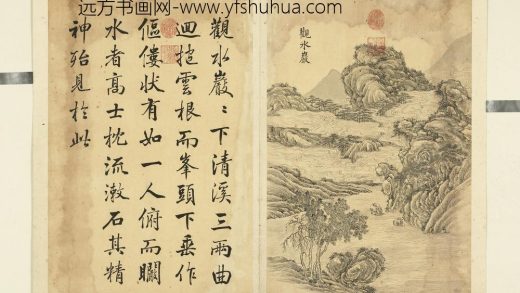 远方书画网-www.yfshuhua.com
觀水巖
觀水巖〻下清溪三兩曲
迴抱雲根而峯頭下垂作
傴僂狀有如一人俯而矙
水者高士枕流漱石其精
神殆見於此